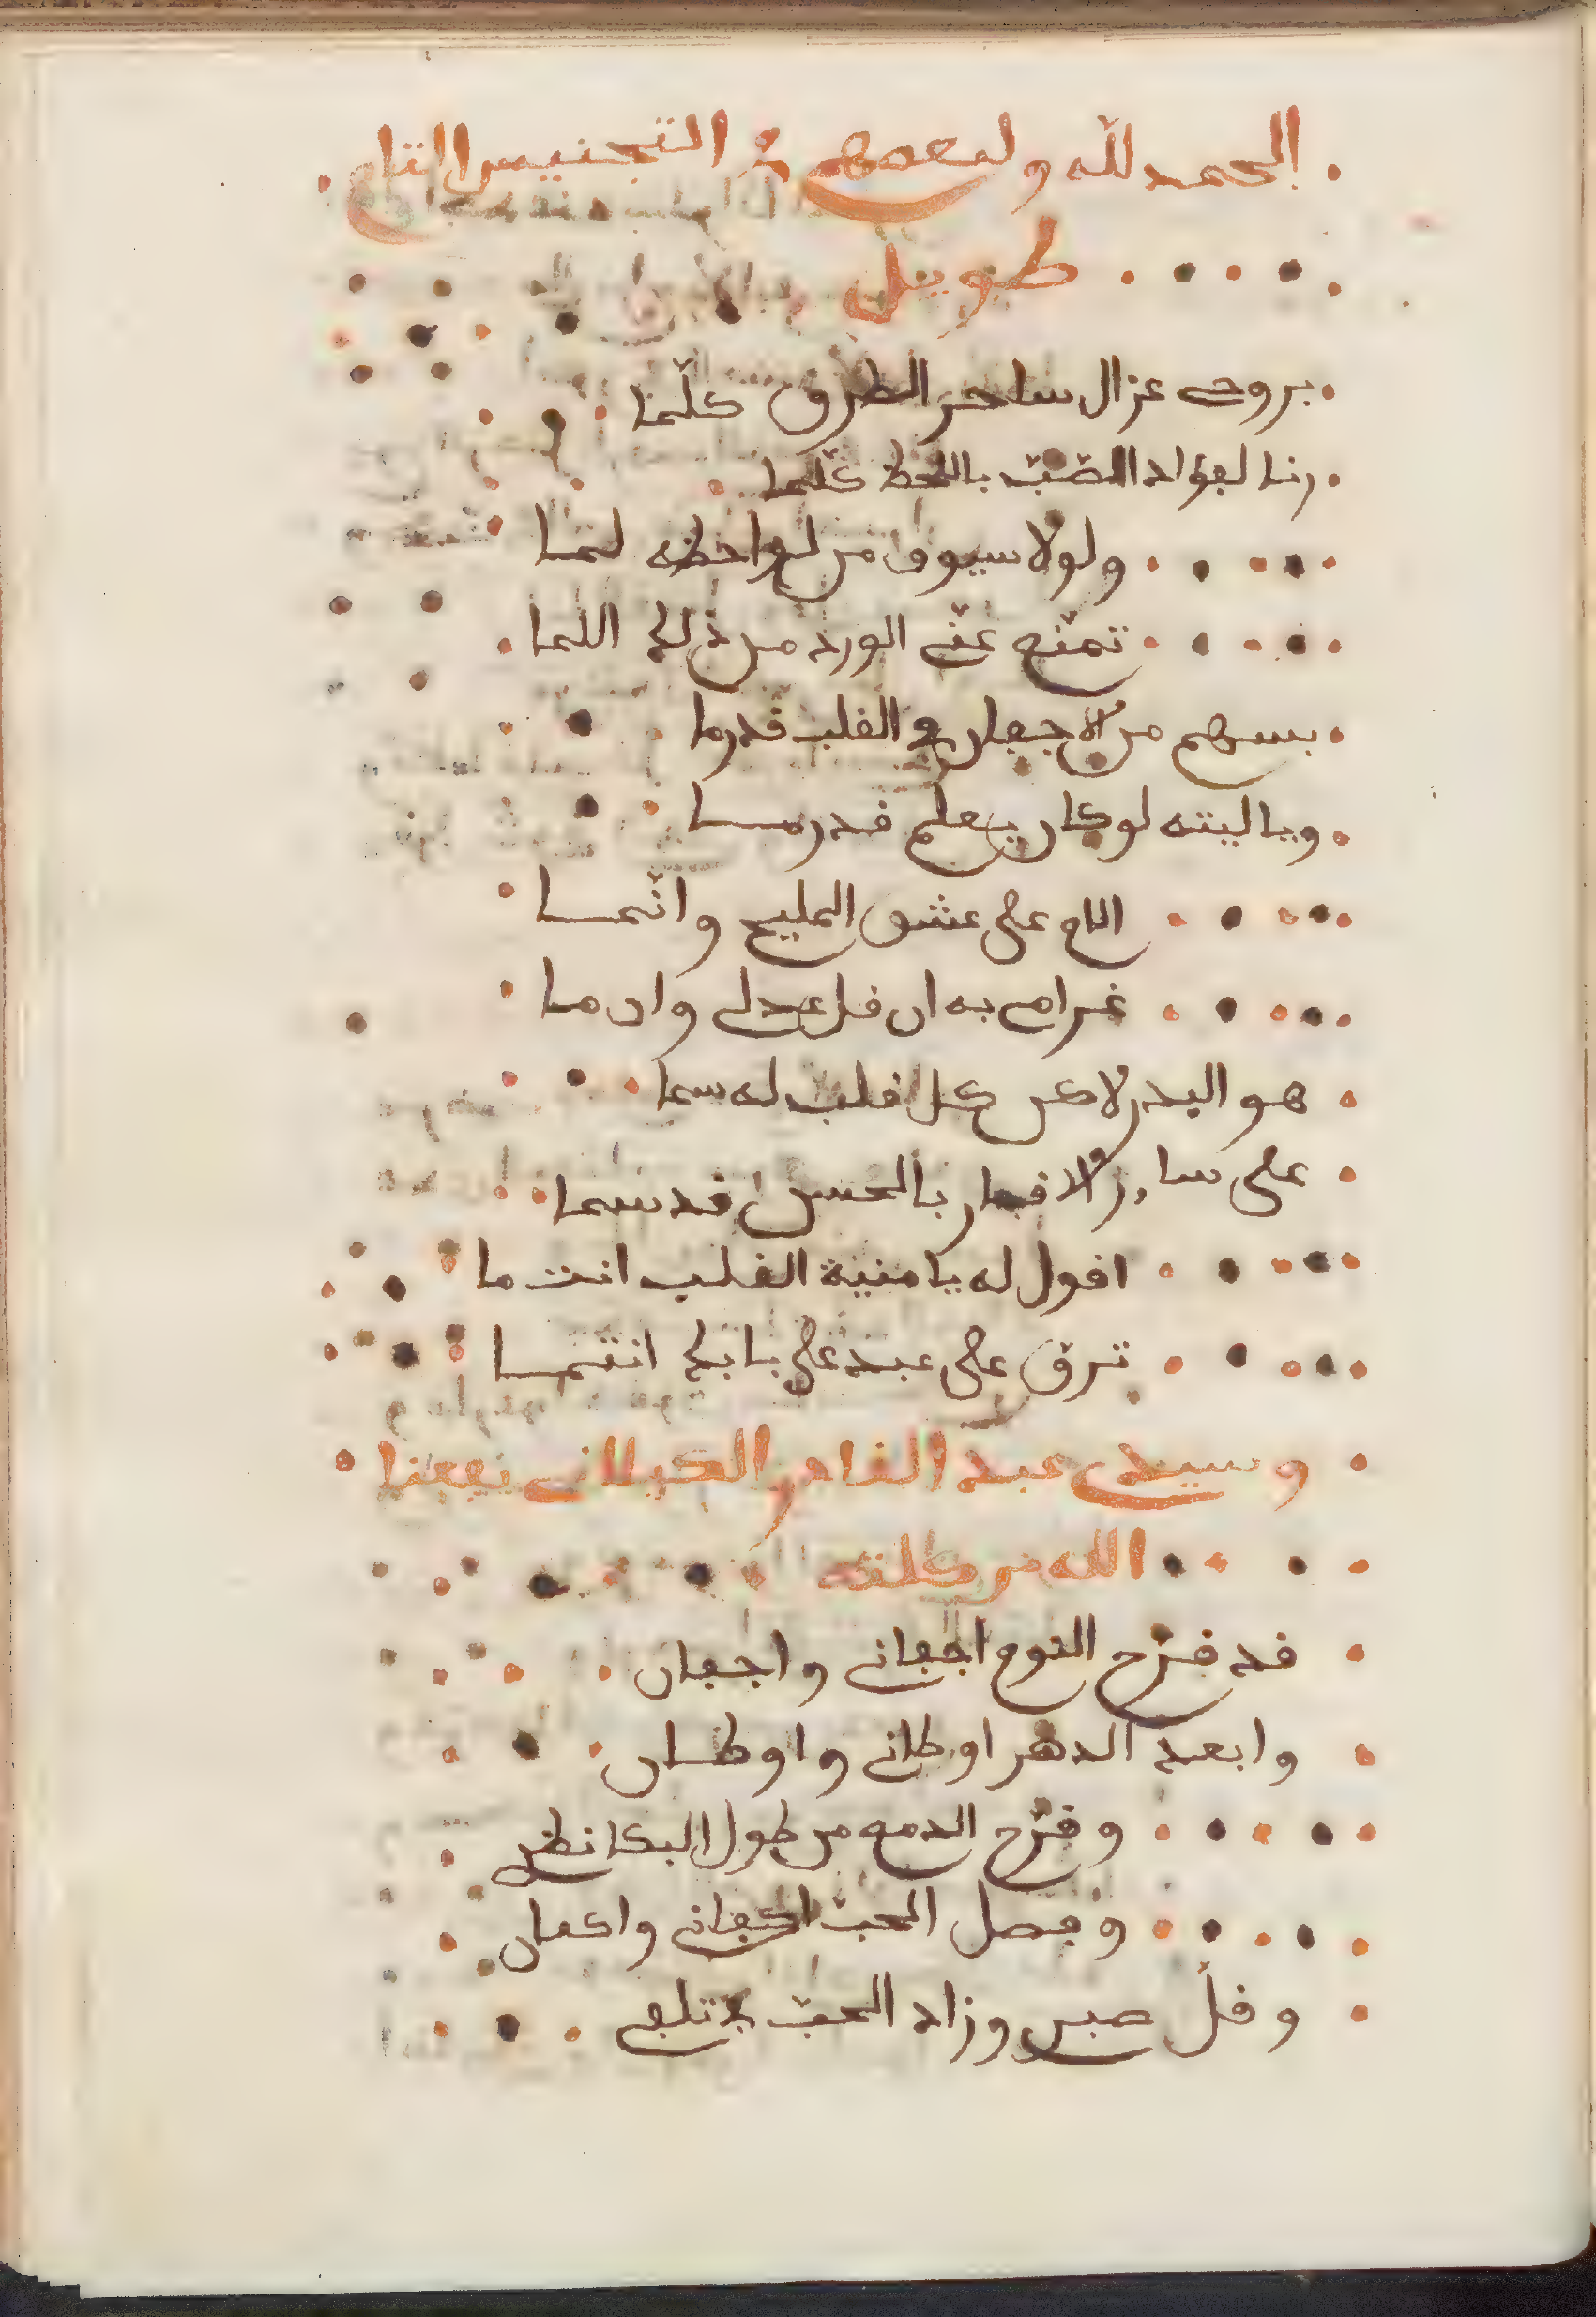 الحمد لله ولبعضهم في التجنيس التام
طويل
بروحي غزال ساحر الطرف كلّما
رنا لفؤاد الصّبّ باللحظ كلّما
ولولا سيوف من لواحظه لما
تمنّع عنّي الورد من ذلك اللما
بسهم من الاجفان في القلب قد رما
ويا ليته لو كان يعلم قدر ما
الام على عشق المليح وانّما
غرامي به ان قل عدلي وان ما
هو البدر لاكن كل قلب له سما
على سائر الاقمار بالحسن قد سما
اقول له يا منية القلب انت ما
ترق على عبد على بابك انتما
وسيدي عبد القادر الكيلاني نفعنا
الله من
قد قرّح النوم اجفاني واجفان
وابعد الدهر اوطاني واوطان
وقرّح الدمع من طول البكا نظري
وفصل الحبّ اكفاني واكفان
وقلّ صبري وزاد الحبّ في تلفي